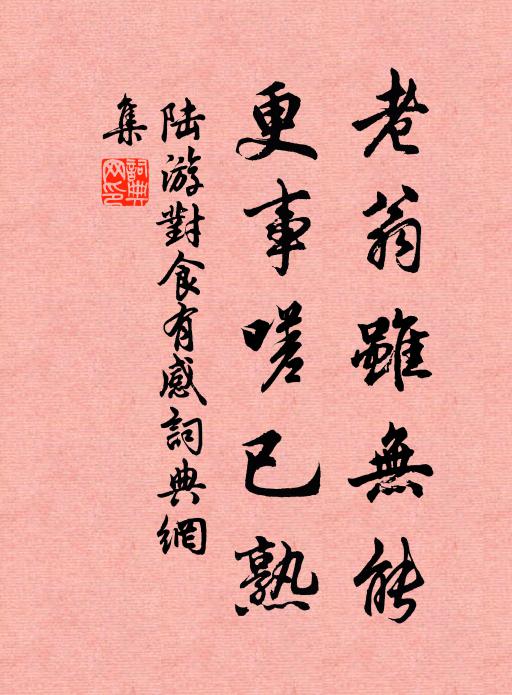 老翁雖無能
更事嗟已熟
陆游對食有感詞典網
集
詞典网印